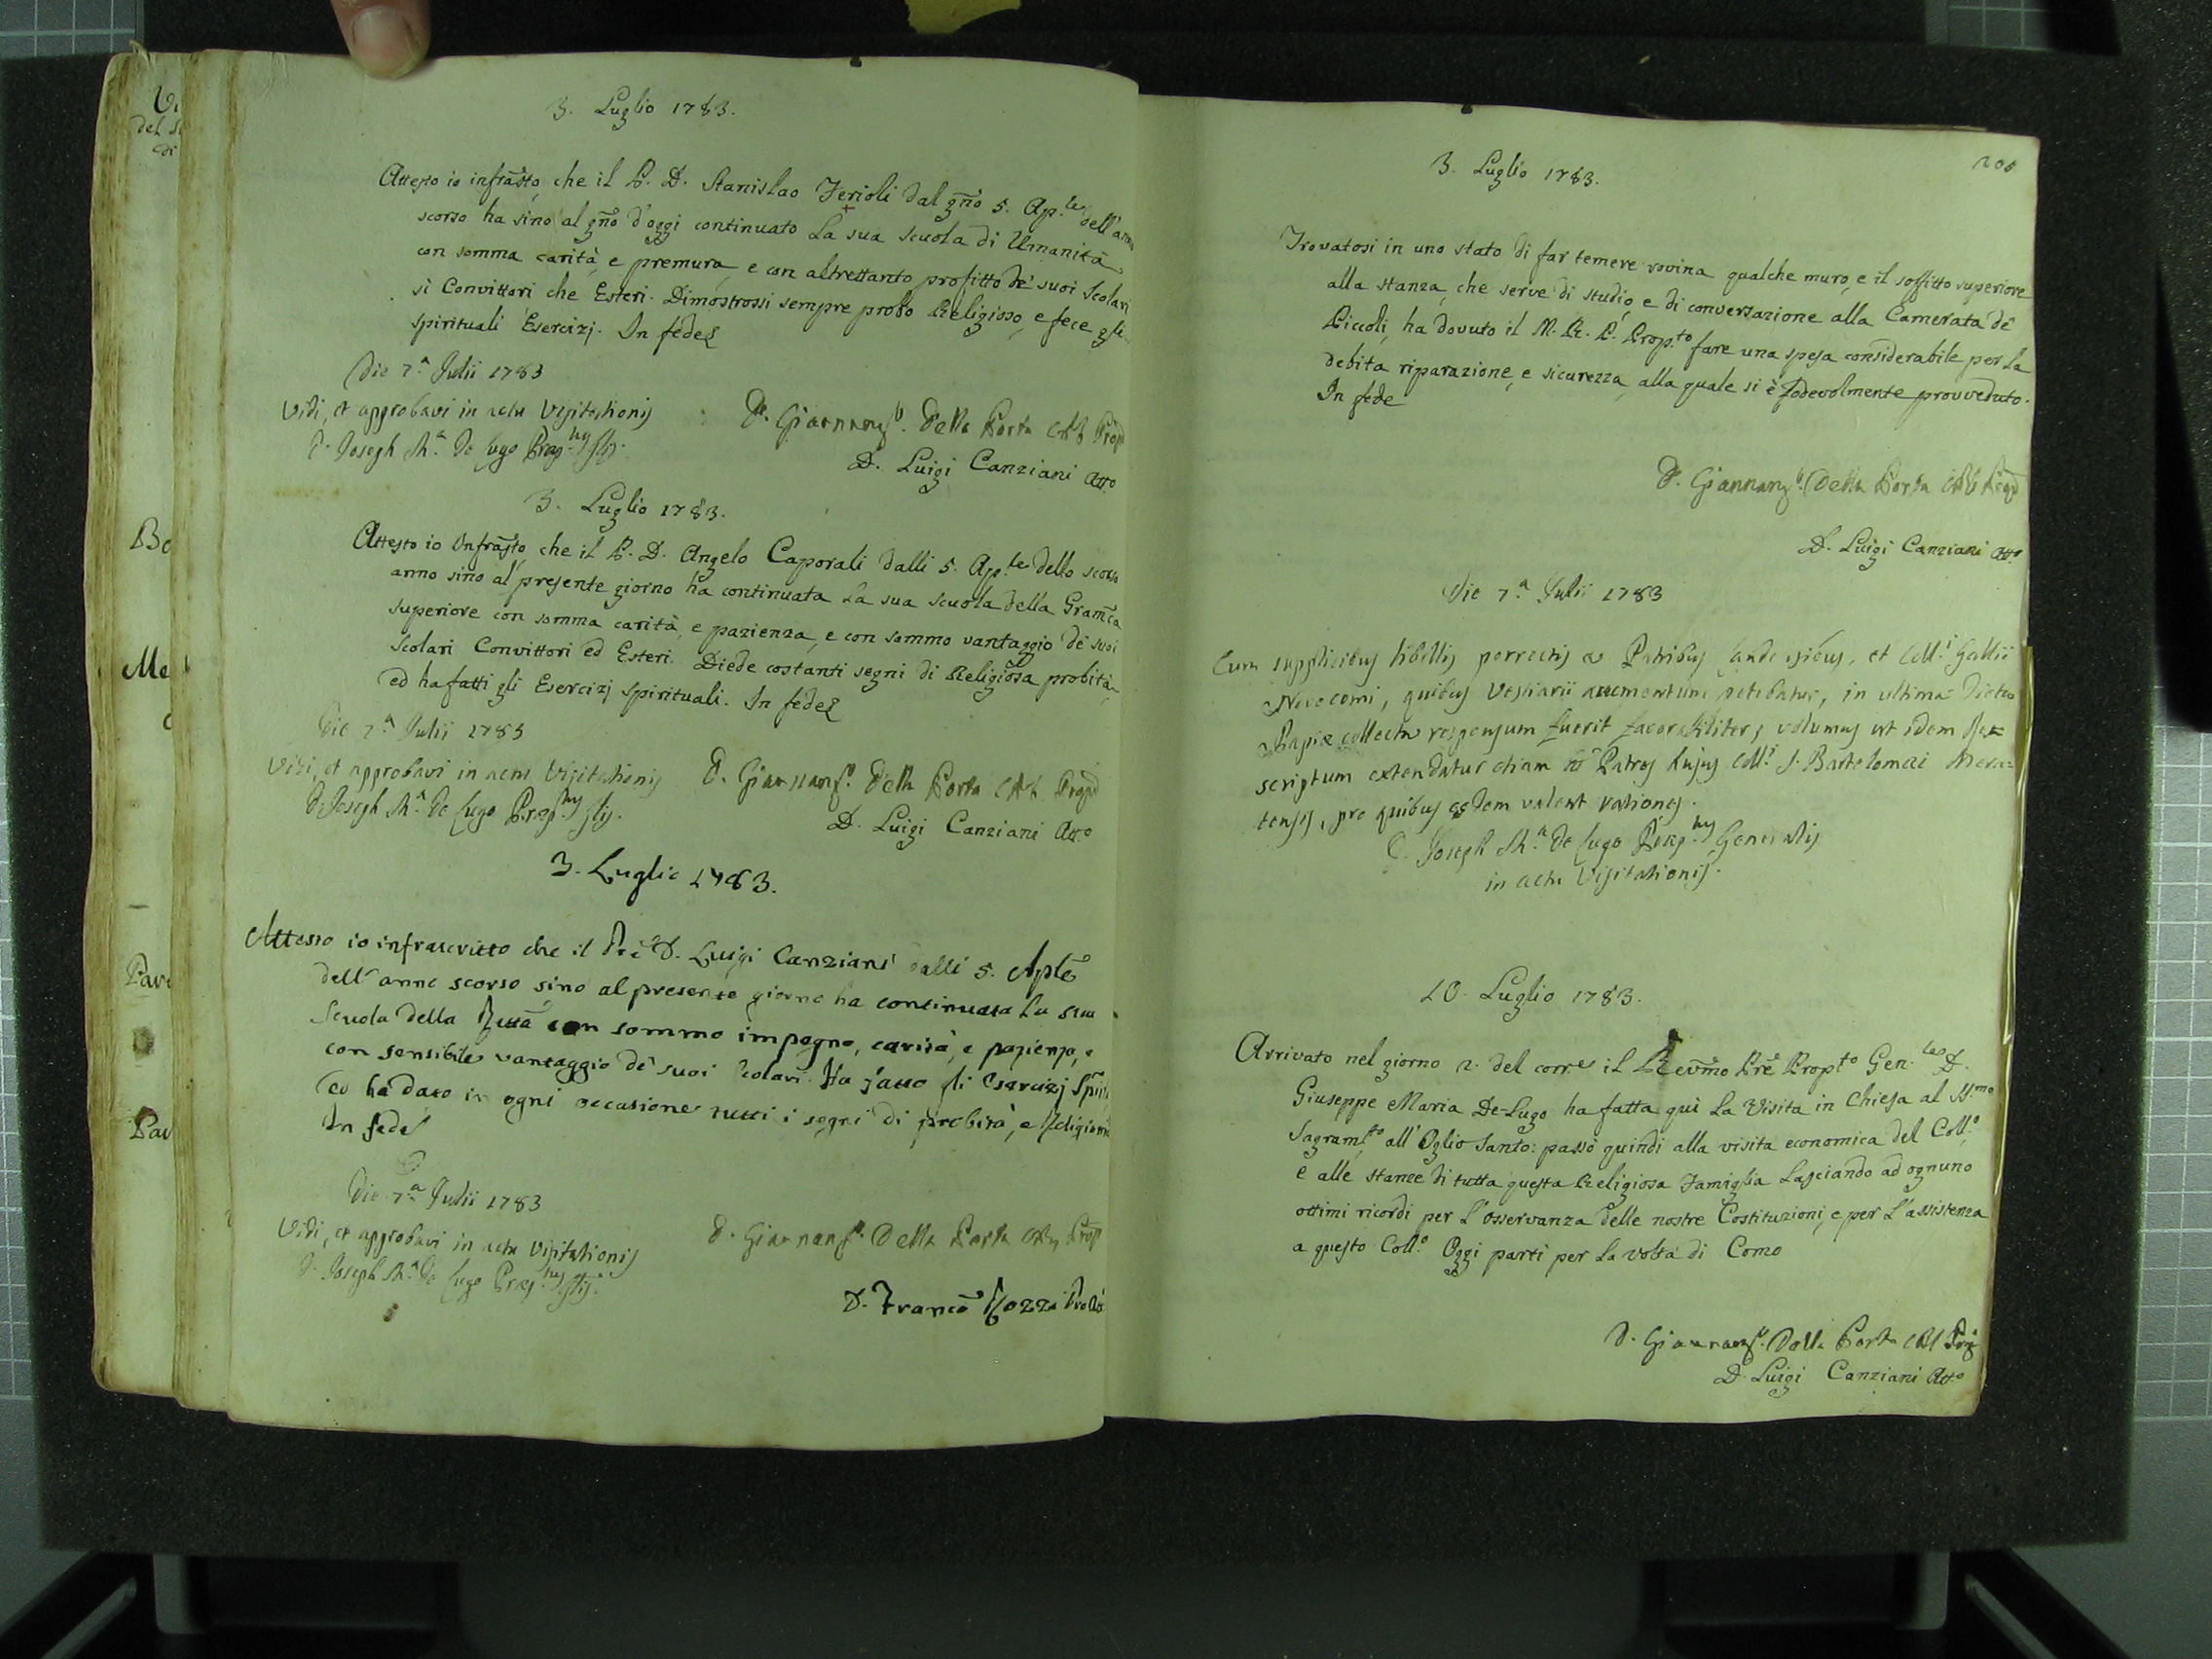 3. Luglio 1783.
Attesto io infrãsto, che il P. D. Stanislao Ferioli dal gño 5. Ap.le dell'anno
scorso ha sino al gño d'oggi continuato la sua scuola di Umanità
con somma carità, e premura, e con altrettanto profitto de' suoi Scolari
sì Convittori che Esteri. Dimostrossi sempre probo Religioso, e fece gli
spirituali Esercizj. In fede
Die 7.a Julii 1783
Vidi, et approbavi in actu Visitationis
D. Joseph M.a De Lugo Præp.tus Glis.
D. Giannans.o Della Porta CRS Prop.to
D. Luigi Canziani Att.o
3. Luglio 1783.
Attesto io Infrãsto, che il P. D. Angelo Caporali dalli 5. Ap.le dello scorso
anno sino al presente giorno ha continuata la sua scuola della Gram̃ca
superiore con somma carità, e pazienza, e con sommo vantaggio de' suoi
scolari Convittori ed Esteri. Diede costanti segni di Religiosa probità,
ed ha fatti gli Esercizj spirituali. In fede
Die 7.a Julii 1783
Vidi, et approbavi in actu Visitationis
D. Joseph M.a De Lugo Præp.tus Glis.
D. Giannans.o Della Porta CRS Prop.to
D. Luigi Canziani Att.o
3. Luglio 1783.
Attesto io infrascritto che il Prẽ D. Luigi Canziani dalli 5. Aplẽ
dell'anno scorso sino al presente giorno ha continuata la sua
scuola della con sommo impegno, carità, e pazienza, e
con sensibile vantaggio de' suoi scolari. Ha fatto gli Esercizj
ed ha dato in ogni occasione tutti i segni di probità, e Religione
In fede
Die 7.a Julii 1783
Vidi, et approbavi in actu Visitationis
D. Joseph M.a De Lugo Præp.tus Glis.
D. Giannans.o Della Porta CRS Prop
D. Francõ Rozzi
205
3. Luglio 1783.
Trovatosi in uno stato di far temere rovina qualche muro, e il soffitto superiore
alla stanza, che serve di studio, e di conversazione alla Camerata de'
Piccoli, ha dovuto il M. R. P. Prop.to fare una spesa considerabile per la
debita riparazione, e sicurezza, alla quale si è lodevolmente provveduto.
In fede
D. Giannans.o Della Porta CRS Prop
D. Luigi Canziani Att.o
Die 7.a Julii 1783
Cum supplicibus libellis porrectis a Patribus et Coll.i Gallii
Novocomi, quibus Vestiarii augmentum petebatur, in ultima Dieta
Papiæ collecta responsum fuerit favorabiliter; volumus ut idem Re=
scriptum extendatur etiam ad Patres hujus Coll.i S. Bartolomæi Mera=
tensis, pro quibus eædem valent rationes.
D. Joseph M.a De Lugo Præp.tus Generalis
in actu Visitationis.
10. Luglio 1783.
Arrivato nel giorno 2. del corre il Revm̃o Prẽ Prop.to Gen.le D.
Giuseppe Maria De-Lugo ha fatta quì la Visita in Chiesa al SS.mo
Sagram.to, all'Oglio Santo: passò quindi alla visita economica del Coll.o,
e alle stanze di tutta questa Religiosa Famiglia lasciando ad ognuno
ottimi ricordi per l'osservanza delle nostre Costituzioni, e per l'assistenza
a questo Coll.o Oggi partì per la volta di Como
D. Giannans.o Della Porta CRS Prop
D. Luigi Canziani Att.o